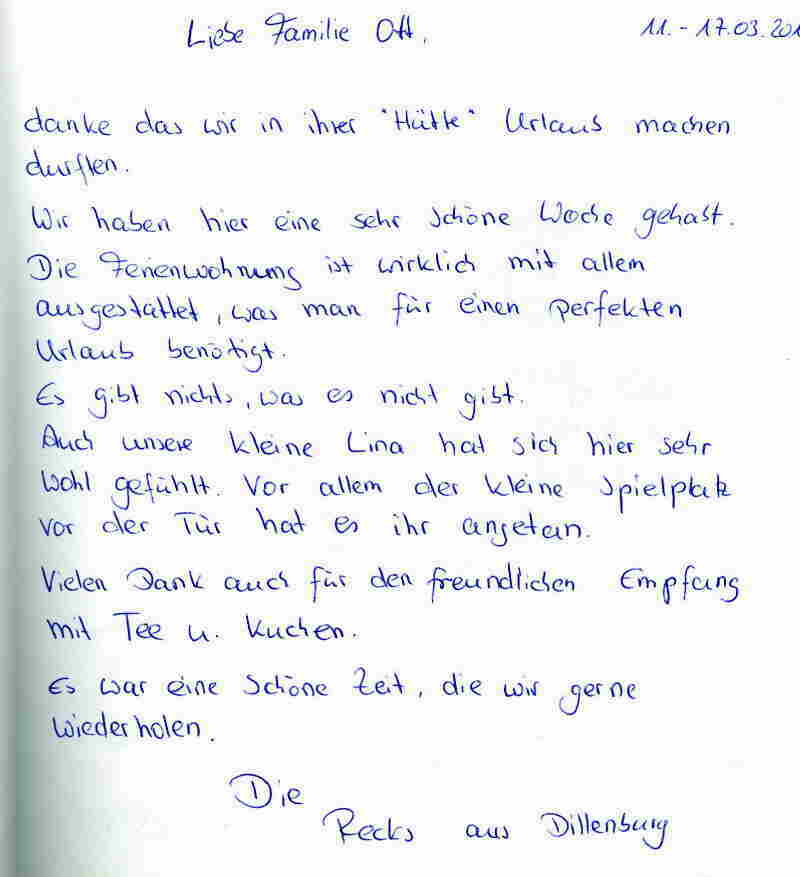 Liebe Familie Ott, 11. - 17.03.201
danke das wir in ihrer "Hütte" Urlaub machen
durften.
Wir haben hier eine sehr schöne Woche gehabt.
Die Ferienwohnung ist wirklich mit allem
ausgestattet, was man für einen perfekten
Urlaub benötigt.
Es gibt nichts, was es nicht gibt.
Auch unsere kleine Lina hat sich hier sehr
wohl gefühlt. Vor allem der kleine Spielplatz
vor der Tür hat es ihr angetan.
Vielen Dank auch für den freundlichen Empfang
mit Tee u. Kuchen.
Es war eine schöne Zeit, die wir gerne
wiederholen.
Die
Recks aus Dillenburg